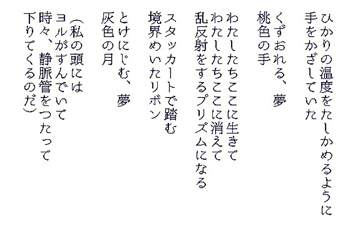 ひかりの温度をたしかめるように
手をかざしていた
くずおれる、夢
桃色の手
わたしたちここに生きて
わたしたちここに消えて
乱反射をするプリズムになる
スタッカートで踏む
境界めいたリボン
とけにじむ、夢
灰色の月
(私の頭には
ヨルがすんでいて
時々、静脈管をつたって
下りてくるのだ)